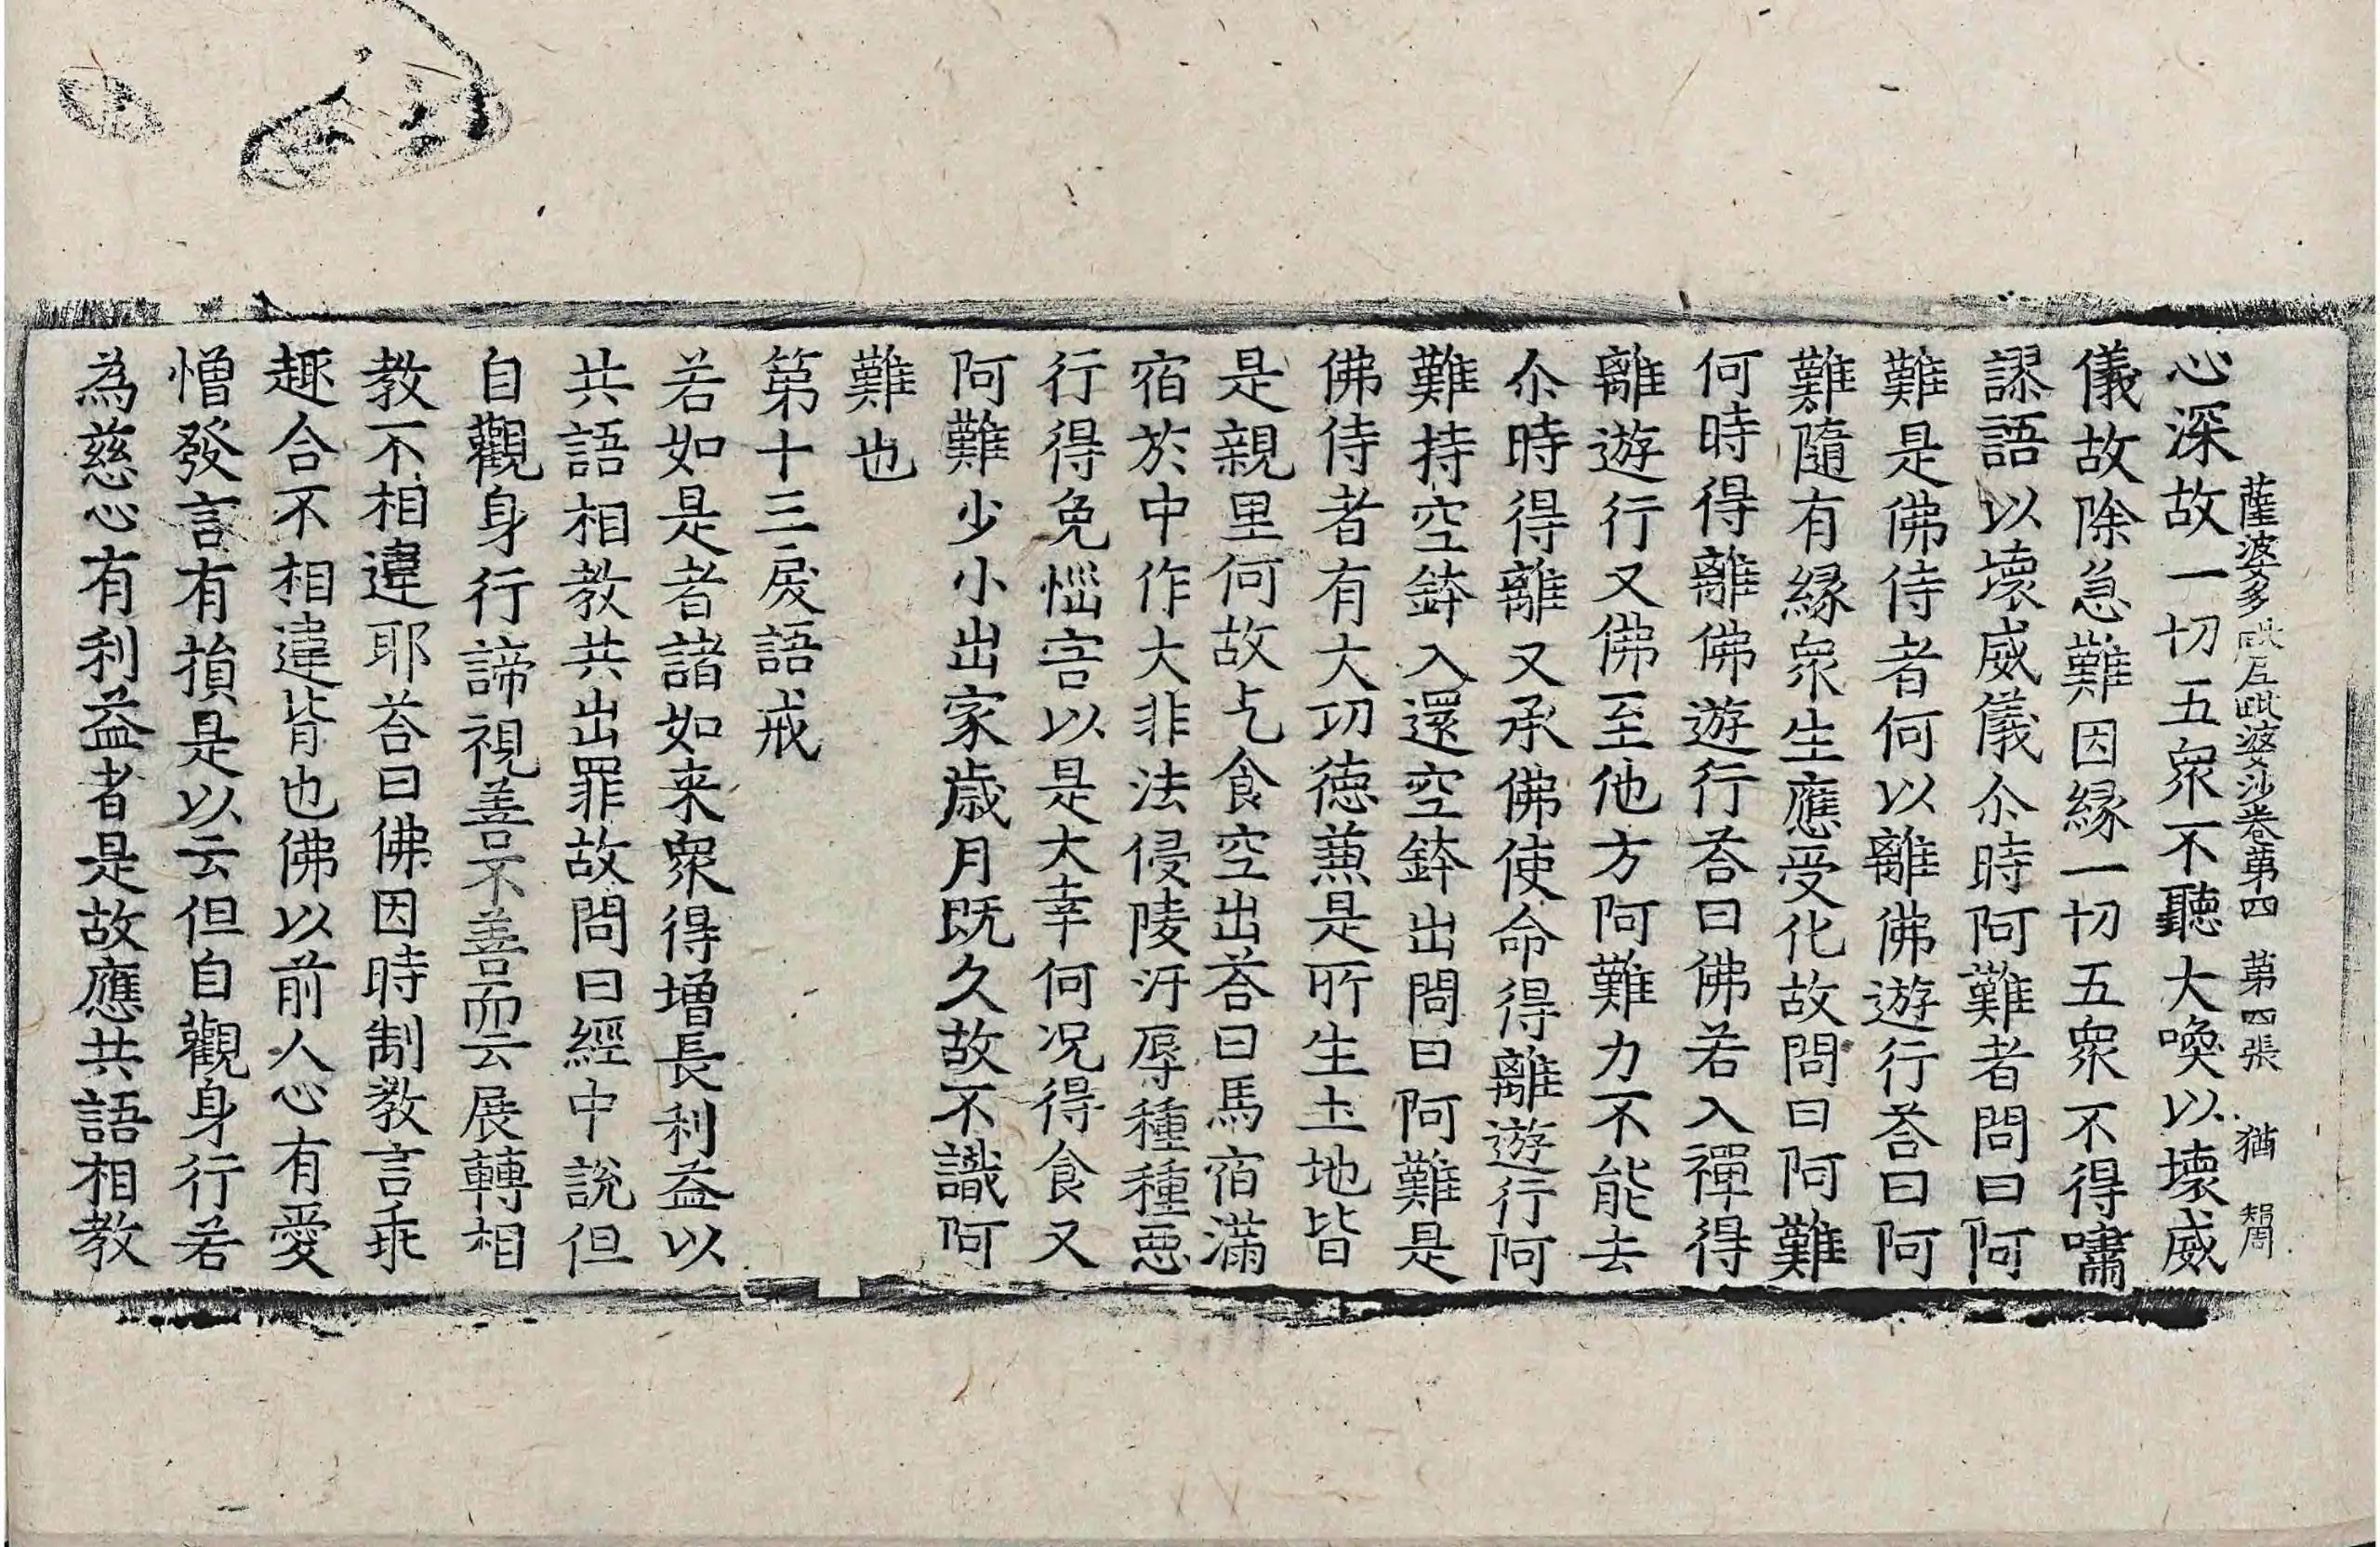 薩婆多毗尼毗婆沙卷第四 第四張 猶 智周
心深故一切五衆不聽大喚以壞威
儀故除急難因縁一切五衆不得嘯
謬語以壞威儀尒時阿難者問曰阿
難是佛侍者何以離佛遊行荅曰阿
難隨有縁衆生應受化故問曰阿難
何時得離佛遊行荅曰佛若入禪得
離遊行又佛至他方阿難力不能去
尒時得離又承佛使命得離遊行阿
難持空鉢入還空鉢出問曰阿難是
佛侍者有大功徳蕪是所生土地皆
是親里何故乞食空出荅曰馬宿滿
宿於中作大非法侵陵汙辱種種惡
行得免惱害以是大幸何况得食又
阿難少小出家歳月既久故不識阿
難也
第十三戾語戒
若如是者諸如来衆得增長利益以
共語相教共出罪故問曰經中說但
自觀身行諦視善不善而云展轉相
教不相違耶荅曰佛因時制教言乖
趣合不相違背也佛以前人心有愛
憎發言有損是以云但自觀身行若
為慈心有利益者是故應共語相教